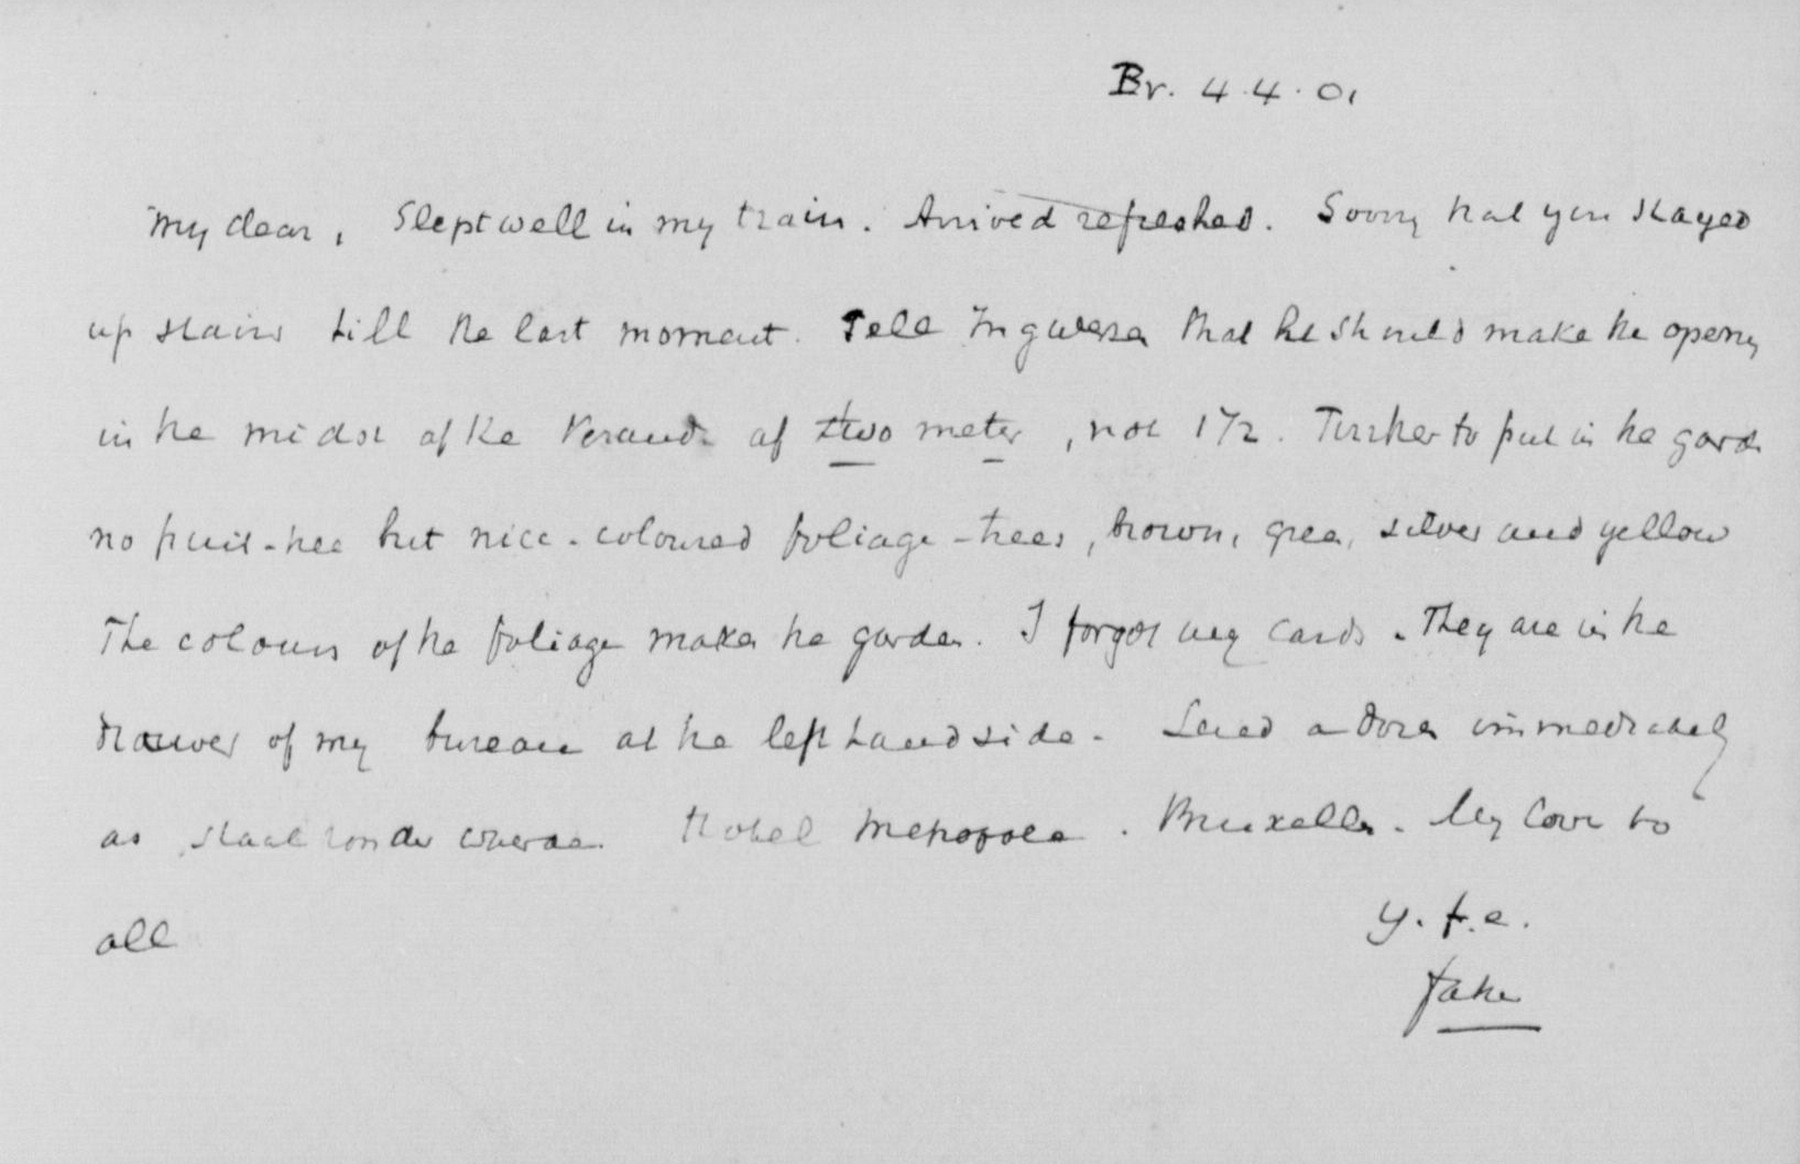 Br. 4.4.01
My dear, Slept well in my train. Arrived refreshed. Sorry that you stayed
up stairs till the last moment. Tell that he should make the opening
in the midst of the Verand of two meter, not 1 1/2. Further to put in the garden
no fruit-tree but nice-coloured foliage-trees, brown, green, silver and yellow
The colours of the foliage makes the garden. I forgot my cards. They are in the
drawer of my bureau at the left hand side. Send a dozen immediately
as "zonder waarde. Hotel Metropole. Bruxelles. My love to
all
y. f.
father